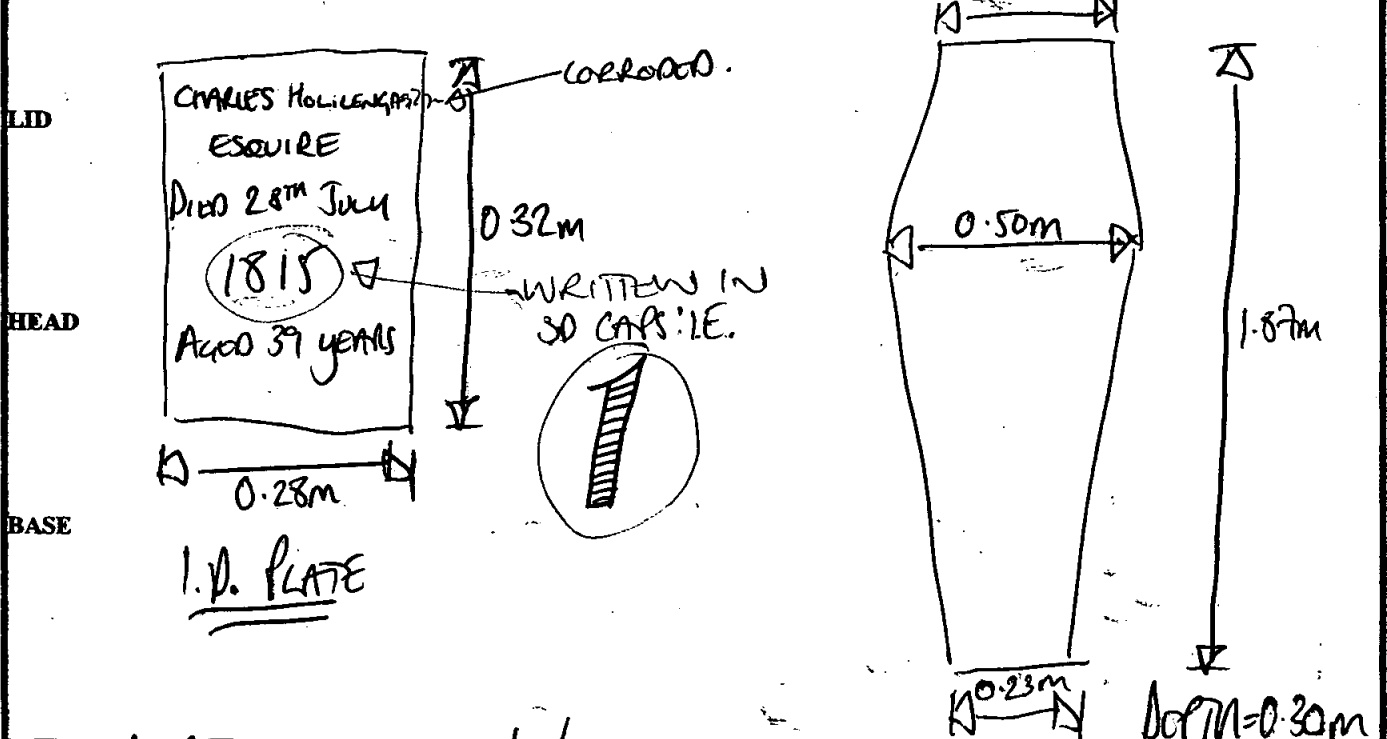 LID
HEAD
BASE
CHARLES
ESQUIRE
DIED 28TH JULY
1815
AGED 39 YEARS
CORRODED.
0.32m
WRITTEN IN
3D CAPS: I.E.
1
0.28m
I.D. PLATE
0.50m
1.87m
0.23m
DEPTH=0.30m